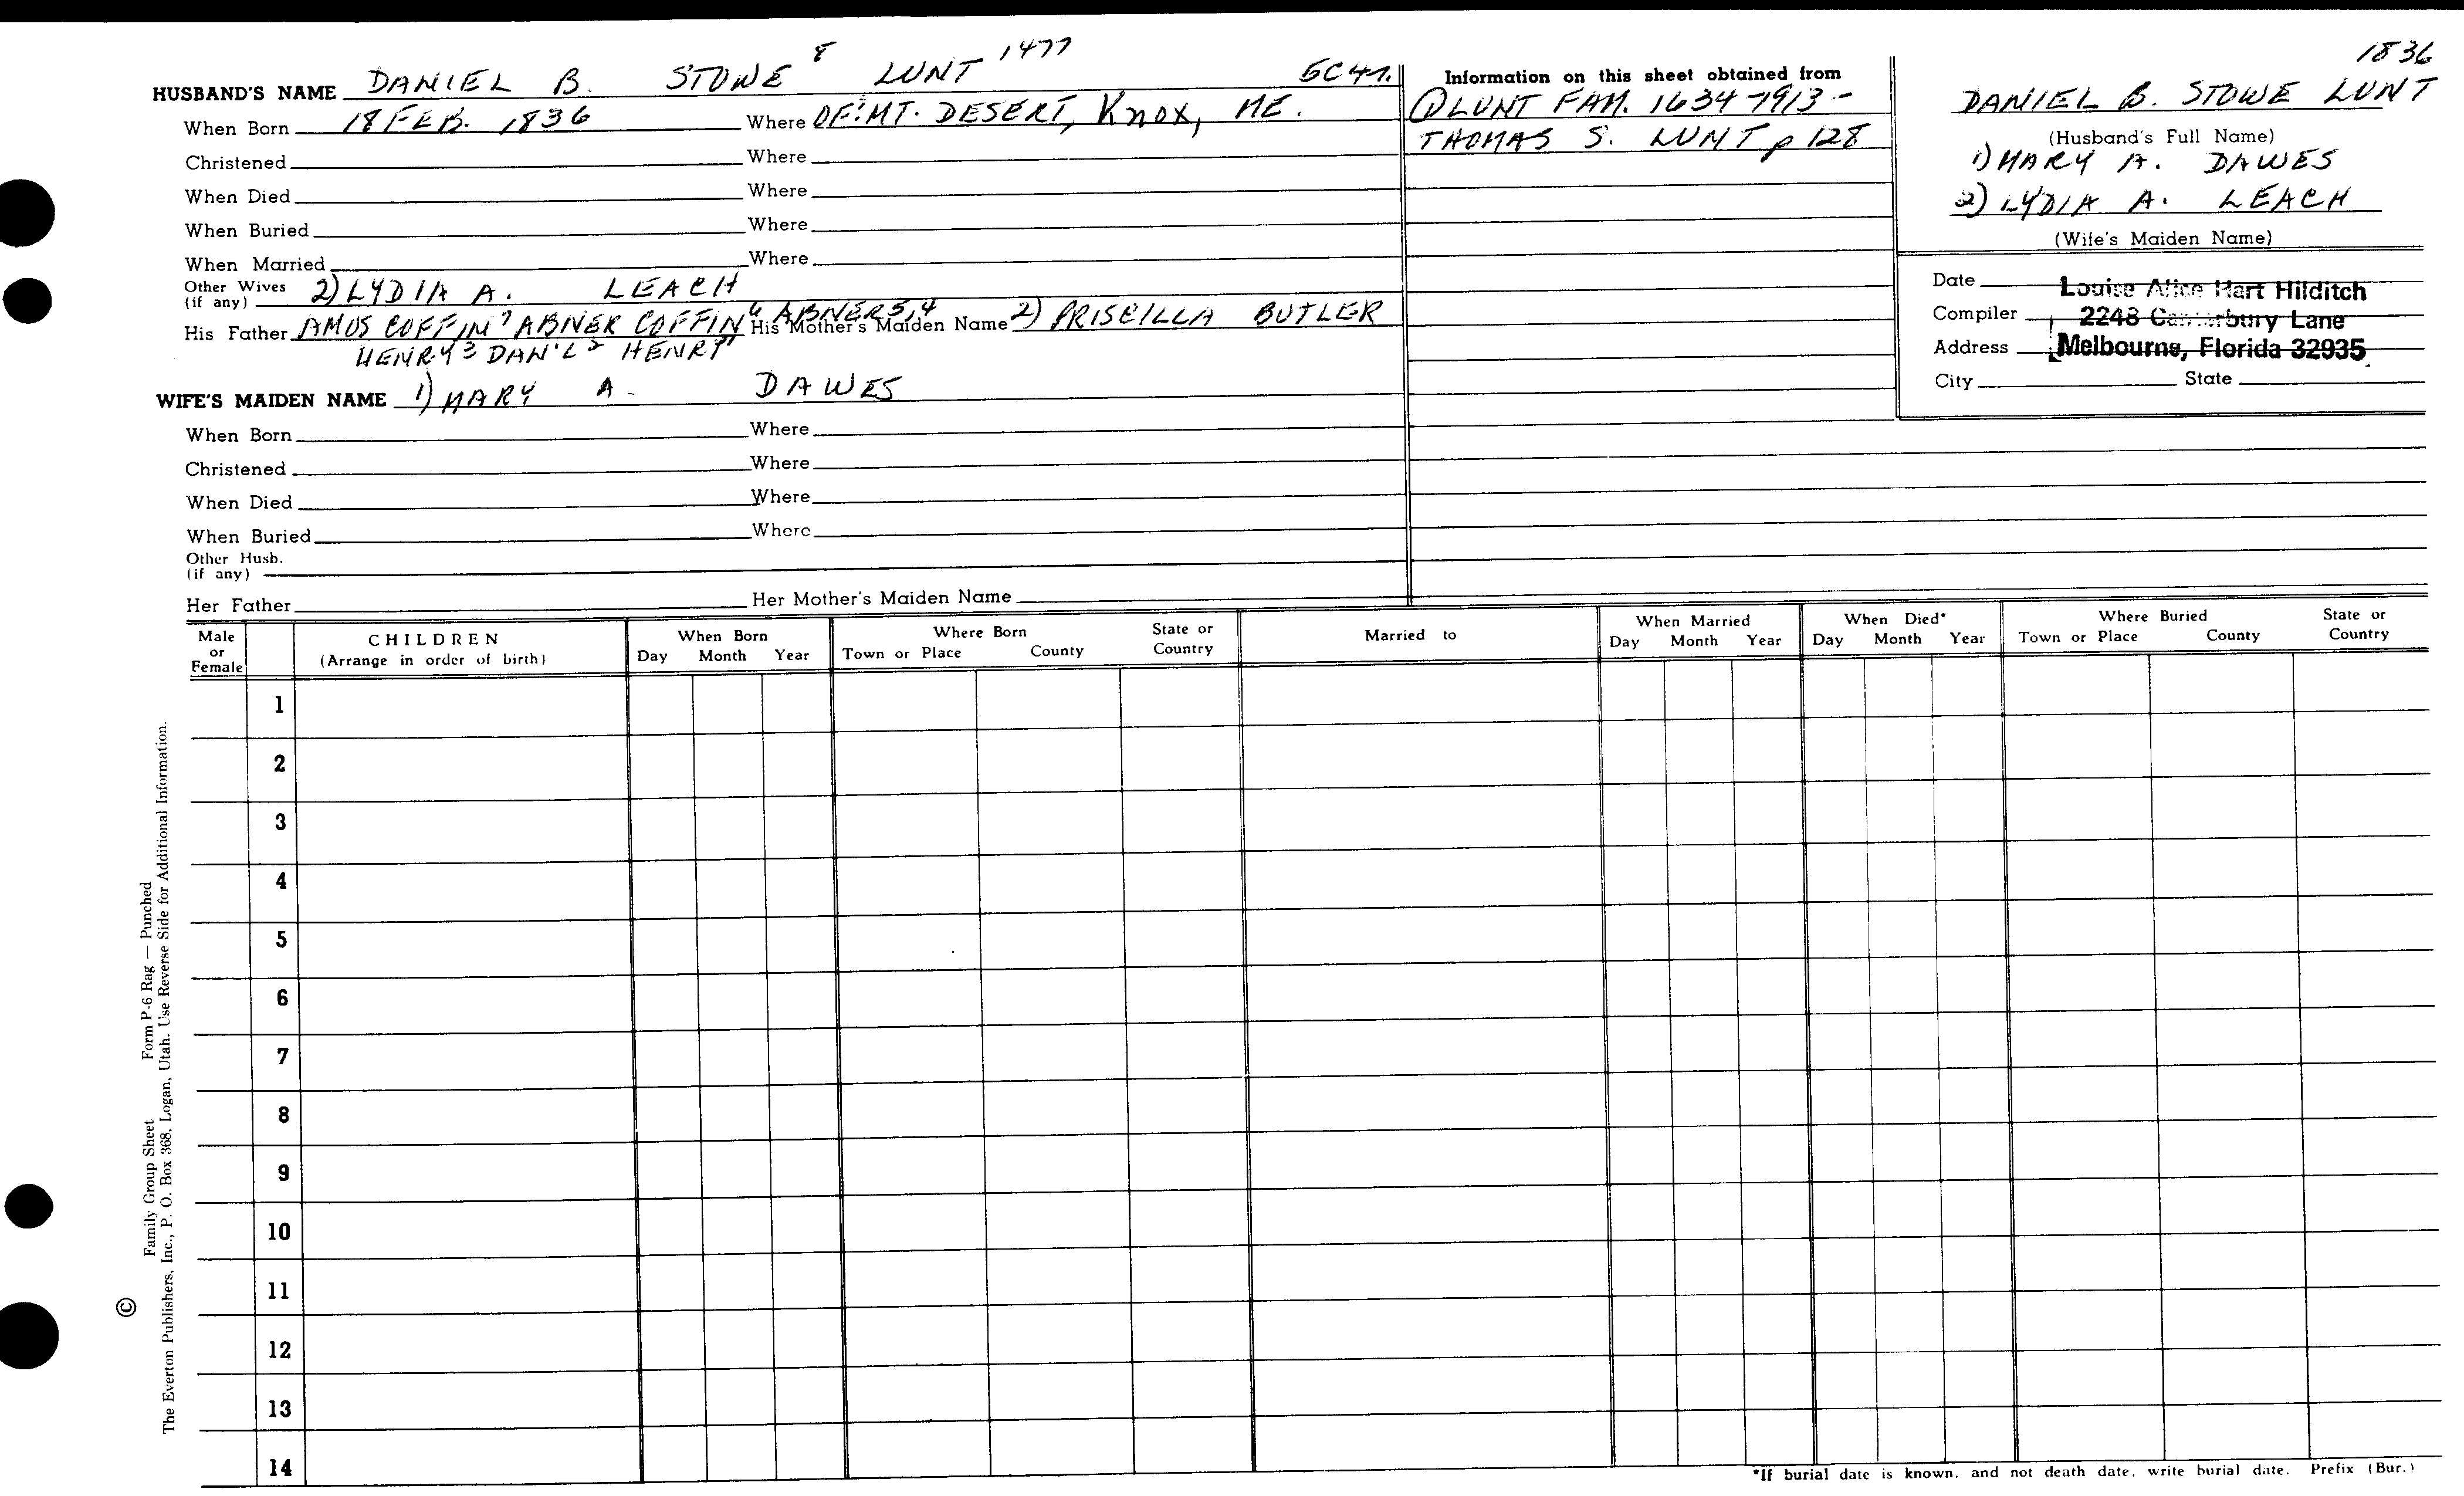 HUSBAND'S NAME DANIEL B. STOWE 8 LUNT 1477 5C41.
When Born 18 FEB. 1836 Where OF: MT. DESERT, Knox, ME.
Christened Where
When Died Where
When Buried Where
When Married Where
Other Wives (if any) 2) LYDIA A. LEACH
His Father AMOS COFFIN 7 ABNER COFFIN 6 ABNER 5,4 His Mother's Maiden Name 2) PRISCILLA BUTLER
HENRY 3 DAN'L 2 HENRY 1
WIFE'S MAIDEN NAME 1) MARY A. DAWES
When Born Where
Christened Where
When Died Where
When Buried Where
Other Husb. (if any)
Her Father Her Mother's Maiden Name
Information on this sheet obtained from
1 LUNT FAM. 1634-1913-
THOMAS S. LUNT p 128
1836
DANIEL B. STOWE LUNT
(Husband's Full Name)
1) MARY A. DAWES
2) LYDIA A. LEACH
(Wife's Maiden Name)
Date Louise Alice Hart Hilditch
Compiler 2248 Lane
Address Melbourne, Florida 32935
City State
Male or Female CHILDREN (Arrange in order of birth) When Born Day Month Year Where Born Town or Place County State or Country Married to When Married Day Month Year When Died* Day Month Year Where Buried Town or Place County State or Country
1
2
3
4
5
6
7
8
9
10
11
12
13
14
*If burial date is known, and not death date, write burial date. Prefix (Bur.)
© Family Group Sheet Form P-6 Rag — Punched
The Everton Publishers, Inc., P. O. Box 368, Logan, Utah. Use Reverse Side for Additional Information.